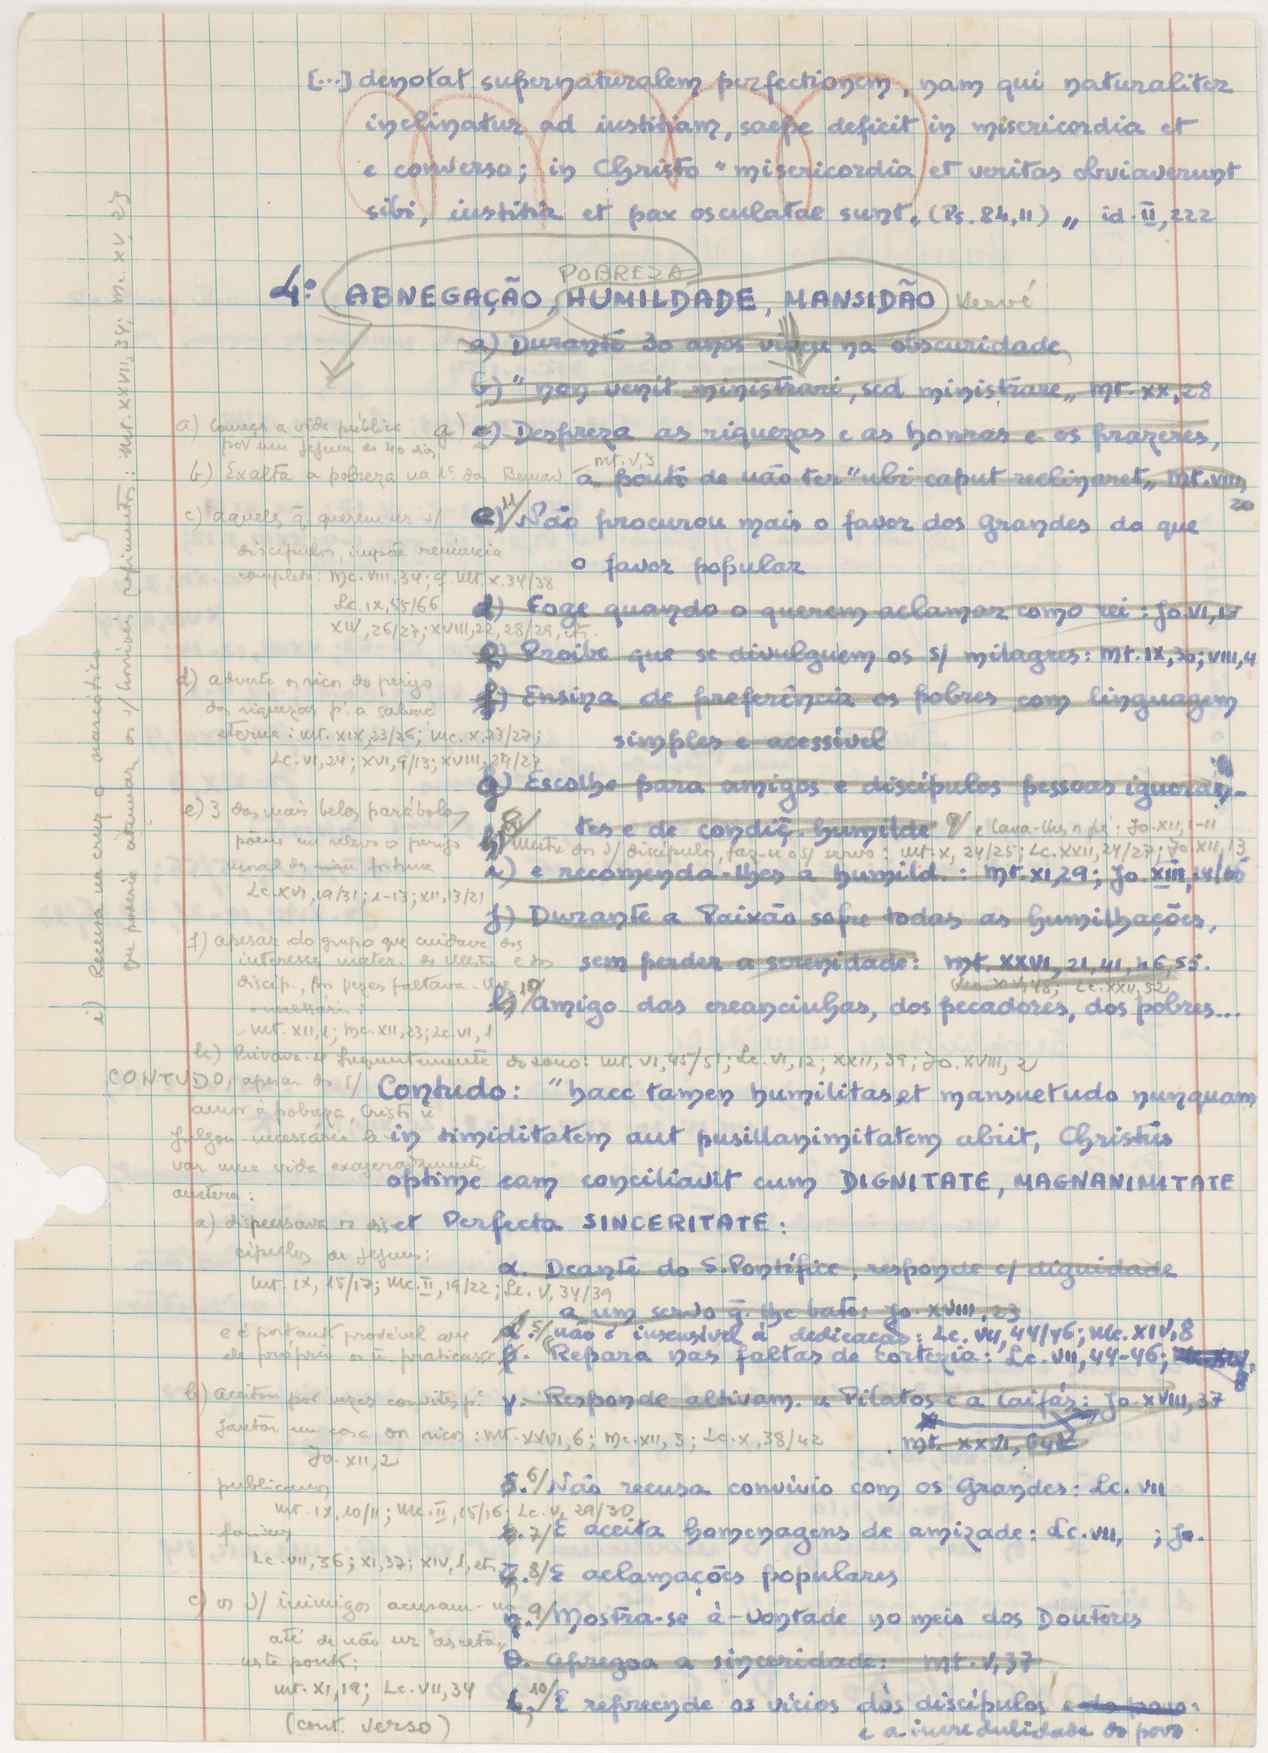 [...] denotat supernaturalem perfectionem, nam qui naturaliter
inclinatur ad iustitiam, saepe deficit in misericordia et
e converso; in Christo "misericordia et veritas obviaverunt
sibi, iustitia et pax osculatae sunt" (Ps. 84,11) „ id. II, 222
POBREZA
4.º ABNEGAÇÃO, HUMILDADE, MANSIDÃO
a) Durante 30 anos viveu na obscuridade
b) "non venit ministrari, sed ministrare„ Mt. XX, 28
a) começa a vida pública
por um jejum de 40 dias
g) c) Despreza as riquezas e as honras e os prazeres,
b) Exalta a pobreza na 1ª das Bemav. Mt. V, 3
a ponto de não ter "ubi caput reclinaret„ Mt. VIII, 20
c) àqueles q̃ querem ser s/
discípulos, impõe renúncia
completa: Mc. VIII, 34; Mt. X, 34/38
Lc. IX, 55/66
XIV, 26/27; XVIII, 22, 28/29, etc.
c) 11/ Não procurou mais o favor dos Grandes do que
o favor popular
d) Foge quando o querem aclamar como rei: Jo. VI, 15
e) Proibe que se divulguem os s/ milagres: Mt. IX, 30; VIII, 4
d) adverte os ricos do perigo
das riquezas p.ª a salvação
eterna: Mt. XIX, 23/26; Mc. X, 23/27;
Lc. VI, 24; XVI, 9/13; XVIII, 24/27
f) Ensina de preferência os pobres com linguagem
simples e acessível
g) Escolhe para amigos e discípulos pessoas ignoran-
tes e de condiç. humilde 9/ e lava-lhes os pés: Jo. XII, 1-11
e) 3 das mais belas parábolas
põem em relevo o perigo
moral da fortuna
Lc. XVI, 19/31; 1-13; XII, 13/21
h) 8/ mestre dos s/ discípulos, faz-se o s/ servo: Mt. X, 24/25; Lc. XXII, 24/27; Jo. XII, 13
i) e recomenda-lhes a humild.: Mt. XI, 29; Jo. XIII, 14/
j) Durante a Paixão sofre todas as humilhações,
sem perder a serenidade: Mt. XXVI, 21, 41, 46, 55.
XIV, 48; Lc. XXII, 52
f) apesar do grupo que cuidava dos
interesses mater. do Mestre e dos
discip., por vezes faltava-lhes
o necessário:
Mt. XII, 1; Mc. XII, 23; Lc. VI, 1
10/ amigo das creancinhas, dos pecadores, dos pobres...
h) Privava-se frequentemente do sono: Mt. VI, 45/51; Lc. VI, 12; XXII, 39; Jo. XVIII, 2
i) Recusa na cruz o narcótico
que poderia atenuar os s/ horríveis sofrimentos: Mt. XXVII, 34; Mc. XV, 23
Contudo: "haec tamen humilitas et mansuetudo nunquam
in timiditatem aut pusillanimitatem abiit, Christus
optime eam conciliavit cum DIGNITATE, MAGNANIMITATE
et Perfecta SINCERITATE:
CONTUDO, apesar do s/
amor à pobreza, Cristo não
julgou necessário le-
var uma vida exageradamente
austera:
a) dispensava os dis-
cípulos de jejum;
Mt. IX, 15/17; Mc. II, 19/22; Lc. V, 34/39
e é portanto provável que
ele próprio os não praticasse
α. Deante do S. Pontífice, responde c/ dignidade
a um servo q̃ lhe bate: Jo. XVIII, 23
5/ não é insensível à dedicação: Lc. VII, 44/46; Mc. XIV, 8
β. Repara nas faltas de cortezia: Lc. VII, 44-46;
γ. Responde altivam. a Pilatos e a Caifás: Jo. XVIII, 37
Mt. XXVI, 64
b) aceitou por vezes convites p.ª
jantar em casa dos ricos: Mt. XXVI, 6; Mc. XII, 3; Lc. X, 38/42
Jo. XII, 2
publicanos
Mt. IX, 10/11; Mc. II, 15/16; Lc. V, 29/30
fariseus
Lc. VII, 36; XI, 37; XIV, 1, etc.
δ. 6/ Não recusa convívio com os Grandes: Lc. VII
7/ E aceita homenagens de amizade: Lc. VII, ; Jo.
ζ. 8/ E aclamações populares
c) os s/ inimigos acusam-no
até de não ser "asceta„
neste ponto:
Mt. XI, 19; Lc. VII, 34
(cont. verso)
η. 9/ Mostra-se à-vontade no meio dos Doutores
θ. Apregoa a sinceridade: Mt. V, 37
ι. 10/ E repreende os vícios dos discípulos e do povo:
e a incredulidade do povo